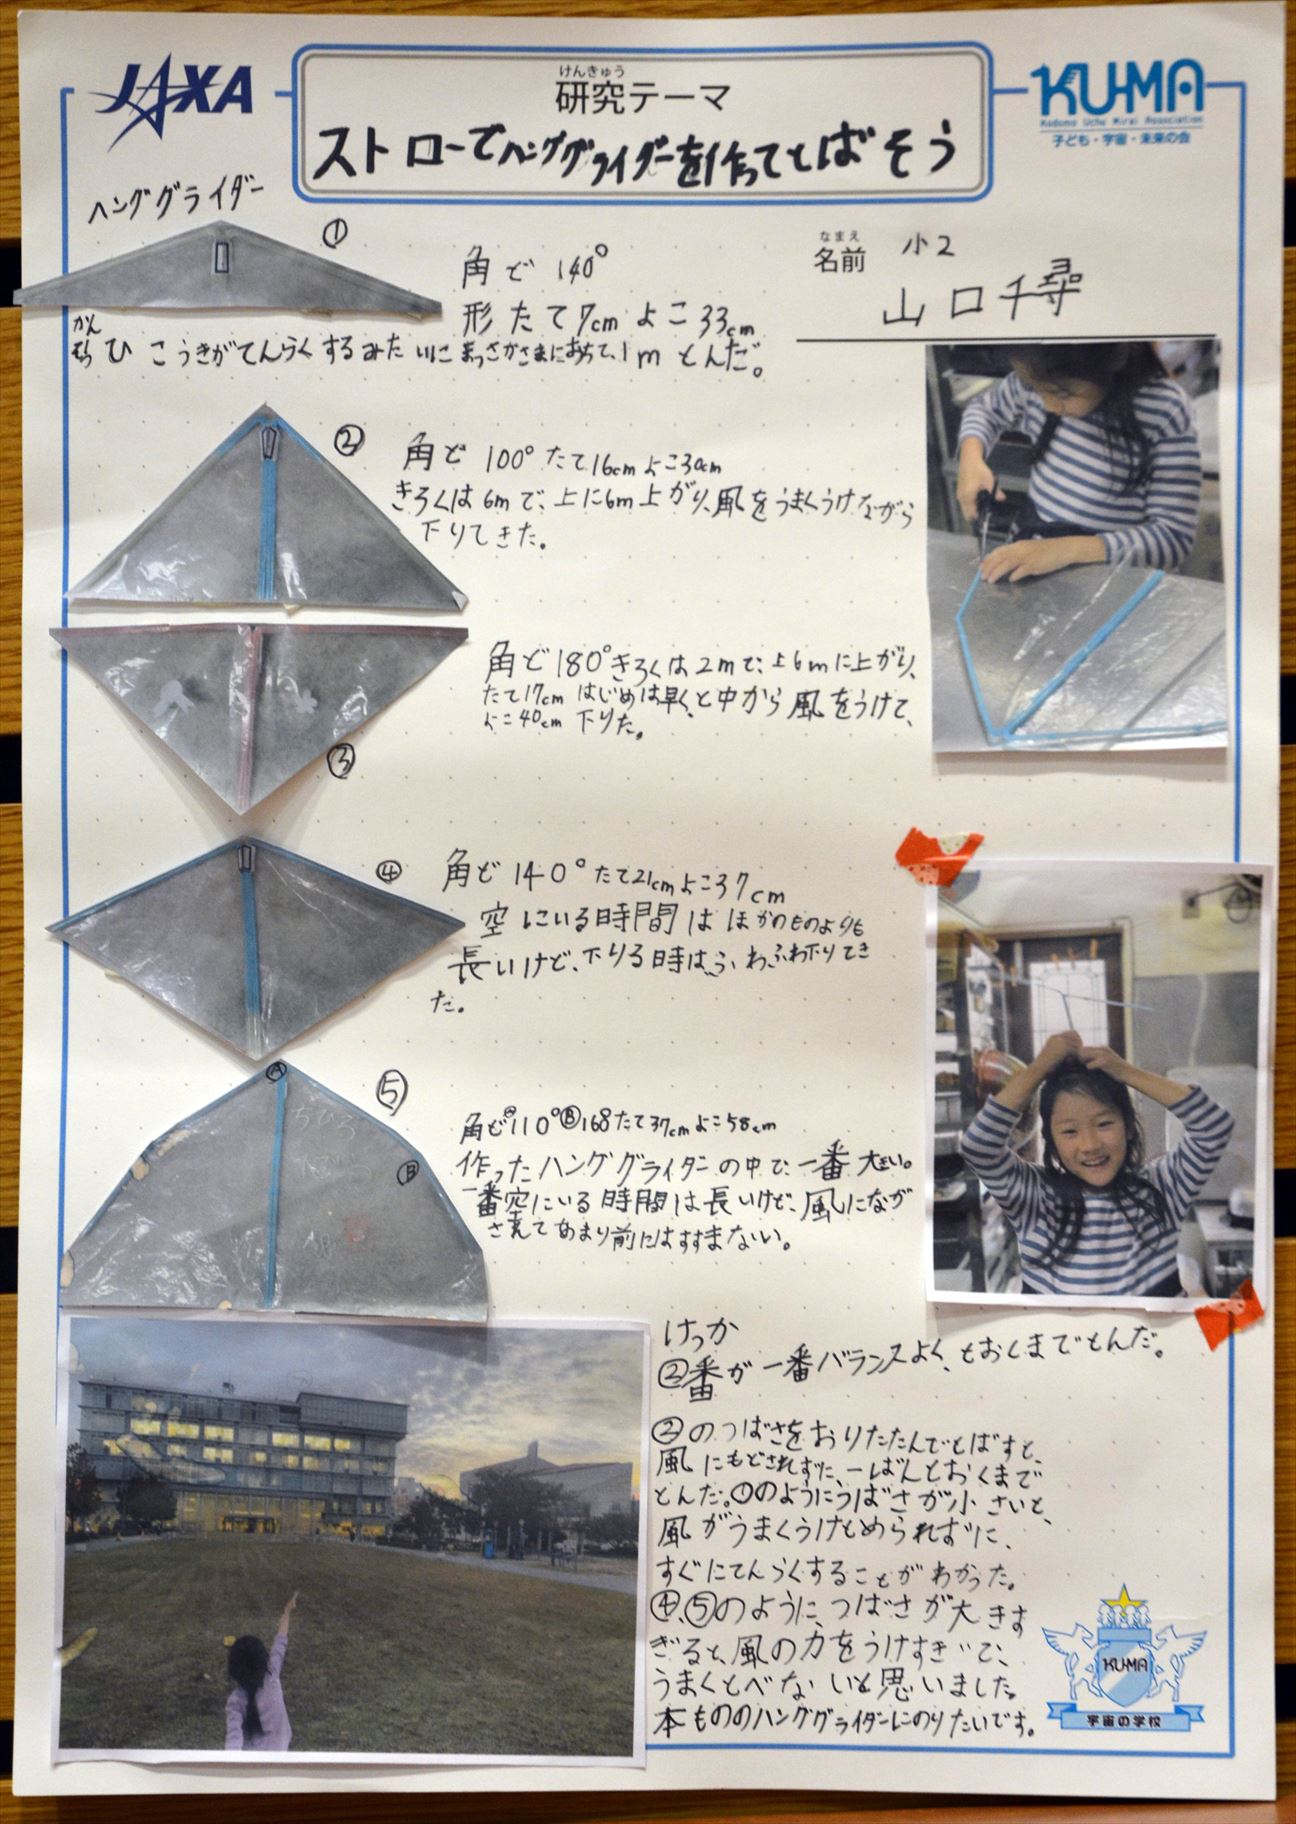 JAXA
けんきゅう
研究テーマ
ストローでハンググライダーを作ってとばそう
KU-MA
Kodomo Uchu Mirai Association
子ども・宇宙・未来の会
ハンググライダー
①
角ど 140°
形 たて7cm よこ33cm
かん
そう
ひこうきがてんらくするみたいにまっさかさまにおちて、1mとんだ。
なまえ
名前
小2
山口千尋
②
角ど 100° たて16cm よこ30cm
きろくは6mで、上に6m上がり、風をうまくうけながら
下りてきた。
角ど180°きろくは2mで、上6mに上がり、
たて17cm はじめは早く、と中から風をうけて、
よこ40cm 下りた。
③
④
角ど140°たて21cmよこ37cm
空にいる時間はほかのものよりも
長いけど、下りる時は、ふわふわ下りてき
た。
Ⓐ
⑤
ちひろ
Ⓑ
角どⒶ110°Ⓑ168たて37cmよこ58cm
作ったハンググライダーの中で、一番大きい。
一番空にいる時間は長いけど、風になが
されて あまり前にはすすまない。
けっか
②番が一番バランスよく、とおくまでとんだ。
②のつばさをおりたたんでとばすと、
風にもどされずに、一ばんとおくまで
とんだ。①のようにつばさが小さいと、
風がうまくうけとめられずに、
すぐにてんらくすることがわかった。
④、⑤のように、つばさが大きす
ぎると、風の力をうけすぎて、
うまくとべないと思いました。
本もののハンググライダーにのりたいです。
KU-MA
宇宙の学校